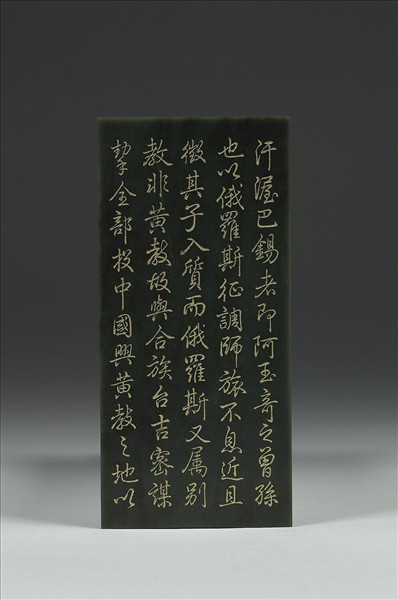 汗渥巴錫者即阿玉奇之曾孫
也以俄羅斯征調師旅不息近且
徵其子入質而俄羅斯又属別
教非黃教故與合族台吉密謀
挈全部投中國興黃教之地以